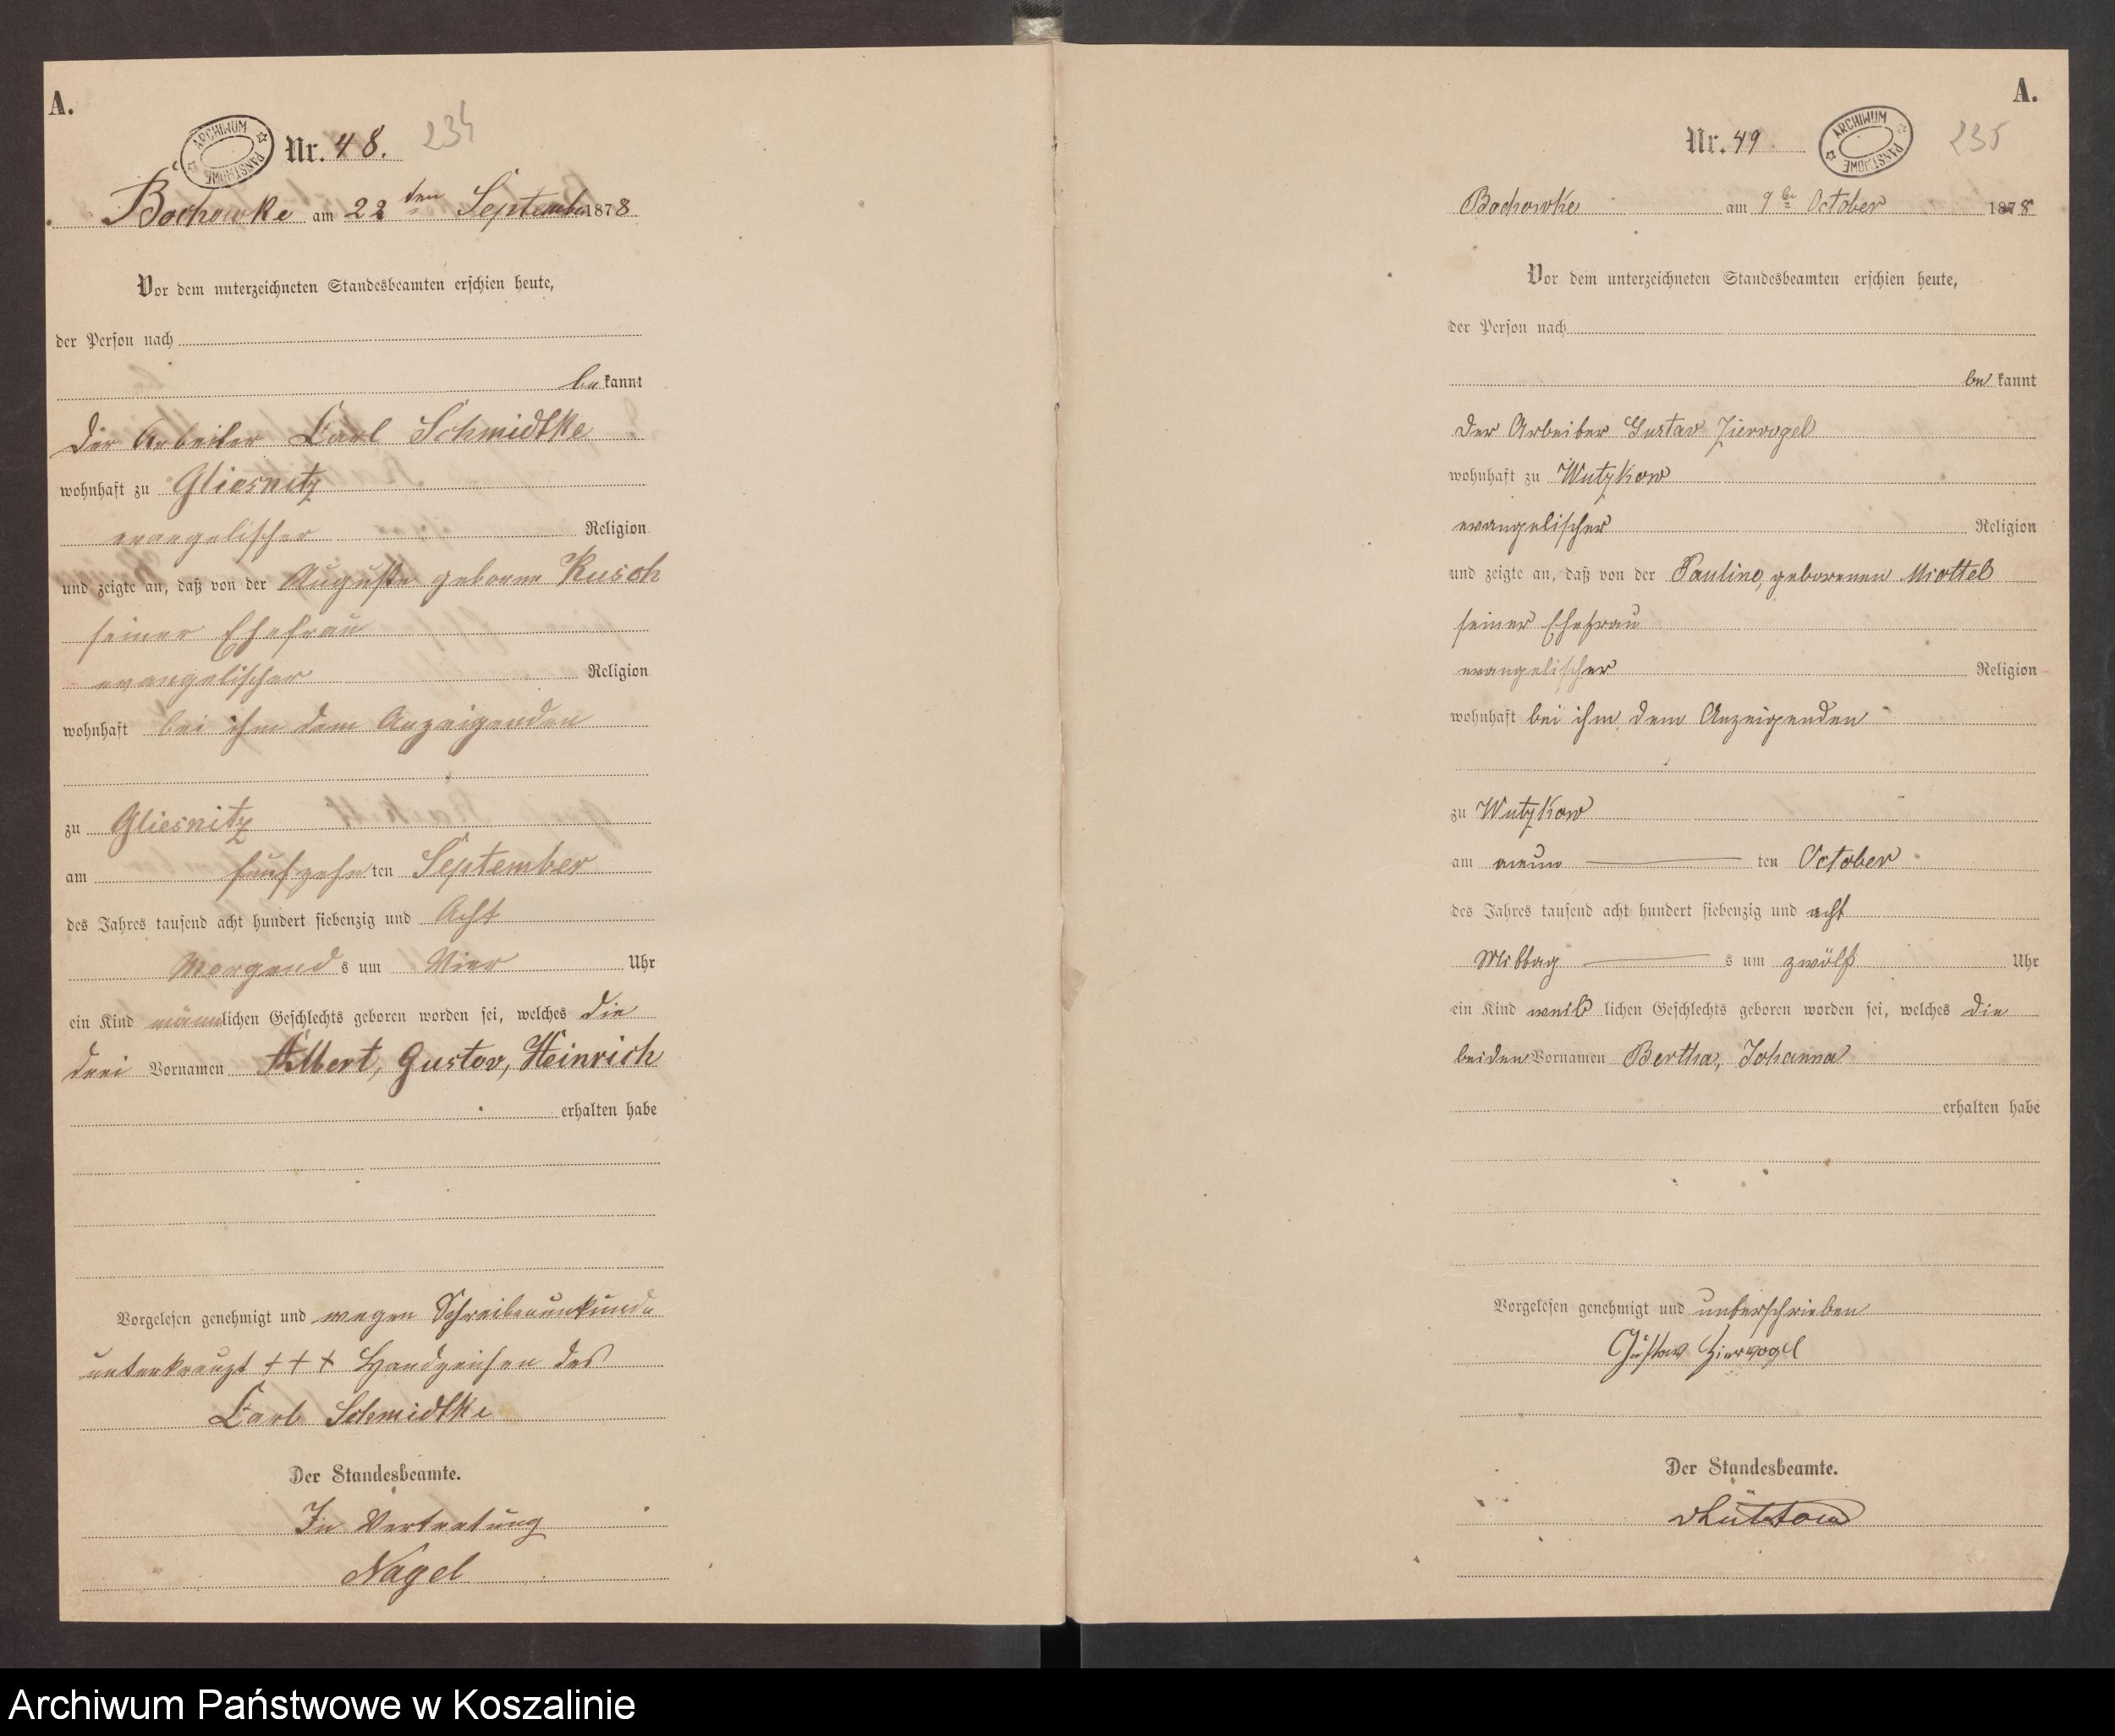 A.
ARCHIWUM PAŃSTWOWE
Nr. 48.
234
Bochowke am 22ten September 1878
Vor dem unterzeichneten Standesbeamten erschien heute,
der Person nach
be kannt
der Arbeiter Carl Schmidtke
wohnhaft zu Gliesnitz
evangelischer Religion
und zeigte an, daß von der Auguste geborne Rusch
seiner Ehefrau
evangelischer Religion
wohnhaft bei ihm dem Anzeigenden
zu Gliesnitz
am fünfzehn ten September
des Jahres tausend acht hundert siebenzig und Acht
Morgend s um Vier Uhr
ein Kind männlichen Geschlechts geboren worden sei, welches die
drei Vornamen Albert, Gustav, Heinrich
erhalten habe
Vorgelesen genehmigt und wegen Schreibensunkunde
unterkreuzt + + + Handzeichen des
Carl Schmidtke
Der Standesbeamte.
In Vertretung
Nagel
A.
Nr. 49
ARCHIWUM PAŃSTWOWE
235
Bochowke am 9ten October 1878
Vor dem unterzeichneten Standesbeamten erschien heute,
der Person nach
be kannt
der Arbeiter Gustav Ziervogel
wohnhaft zu Wutzkow
evangelischer Religion
und zeigte an, daß von der Pauline, geborenen Miottel
seiner Ehefrau
evangelischer Religion
wohnhaft bei ihm, dem Anzeigenden
zu Wutzkow
am neun ten October
des Jahres tausend acht hundert siebenzig und acht
Mittag s um zwölf Uhr
ein Kind weib lichen Geschlechts geboren worden sei, welches die
beiden Vornamen Bertha, Johanna
erhalten habe
Vorgelesen genehmigt und unterschrieben
Gustav Ziervogel
Der Standesbeamte.
Archiwum Państwowe w Koszalinie